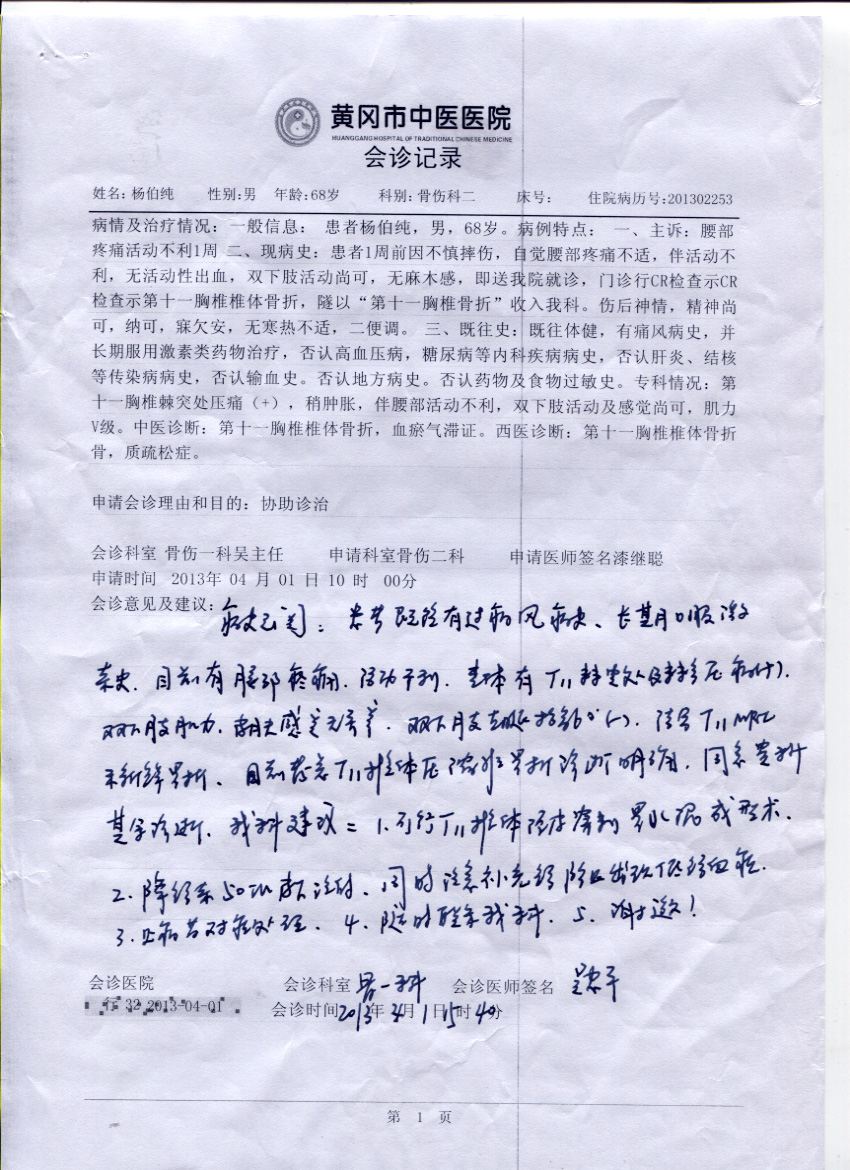 黄冈市中医医院
HUANGGANG HOSPITAL OF TRADITIONAL CHINESE MEDICINE
会诊记录
姓名: 杨伯纯 性别:男 年龄:68岁 科别:骨伤科二 床号: 住院病历号:201302253
病情及治疗情况: 一般信息: 患者杨伯纯, 男, 68岁。病例特点: 一、主诉: 腰部
疼痛活动不利1周 二、现病史: 患者1周前因不慎摔伤, 自觉腰部疼痛不适, 伴活动不
利, 无活动性出血, 双下肢活动尚可, 无麻木感, 即送我院就诊, 门诊行CR检查示CR
检查示第十一胸椎椎体骨折, 隧以“第十一胸椎骨折”收入我科。伤后神情, 精神尚
可, 纳可, 寐欠安, 无寒热不适, 二便调。 三、既往史: 既往体健, 有痛风病史, 并
长期服用激素类药物治疗, 否认高血压病, 糖尿病等内科疾病病史, 否认肝炎、结核
等传染病病史, 否认输血史。否认地方病史。否认药物及食物过敏史。专科情况: 第
十一胸椎棘突处压痛 (+) , 稍肿胀, 伴腰部活动不利, 双下肢活动及感觉尚可, 肌力
V级。中医诊断: 第十一胸椎椎体骨折, 血瘀气滞证。西医诊断: 第十一胸椎椎体骨折
骨, 质疏松症。
申请会诊理由和目的: 协助诊治
会诊科室 骨伤一科吴主任 申请科室骨伤二科 申请医师签名漆继聪
申请时间 2013年 04 月 01 日 10 时 00分
会诊意见及建议: 病史已阅: 患者既往有过痛风病史、长期口服激
素史. 目前有腰部疼痛. 活动不利. 查体有T11棘突处及椎旁压痛(+).
双下肢肌力. 感觉无异常. 双下肢直腿抬高(-). 结合T11 MRI
示新鲜骨折、目前考虑T11椎体压缩性骨折诊断明确. 同意贵科
其它诊断. 我科建议: 1.可行T11椎体经皮穿刺骨水泥成形术.
2. 降钙素50IU 肌注 、同时注意补充钙 防止出现低钙血症.
3. 止痛等对症处理. 4. 随时联系我科. 5. 谢邀!
会诊医院 会诊科室 骨一科 会诊医师签名
行 32 2013-04-01 会诊时间2013年 4月 1日 15时 40分
第 1 页